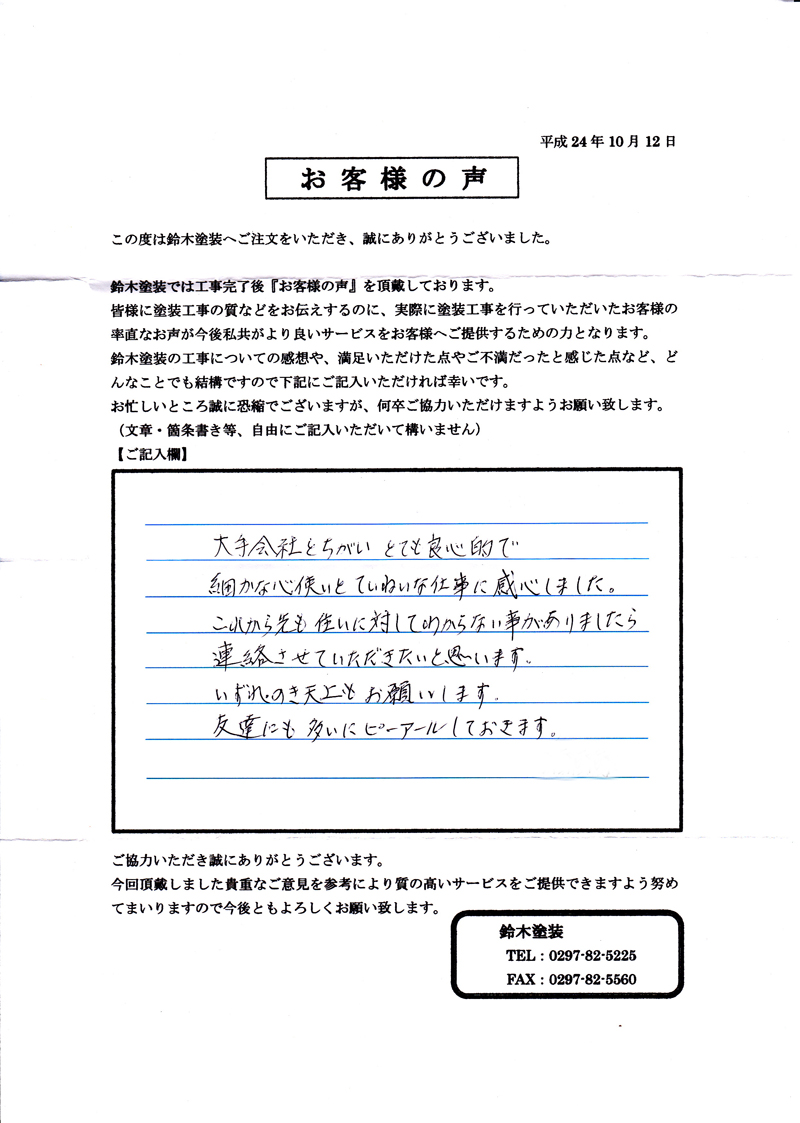 平成24年10月12日
お客様の声
この度は鈴木塗装へご注文をいただき、誠にありがとうございました。
鈴木塗装では工事完了後『お客様の声』を頂戴しております。
皆様に塗装工事の質などをお伝えするのに、実際に塗装工事を行っていただいたお客様の
率直なお声が今後私共がより良いサービスをお客様へご提供するための力となります。
鈴木塗装の工事についての感想や、満足いただけた点やご不満だったと感じた点など、ど
んなことでも結構ですので下記にご記入いただければ幸いです。
お忙しいところ誠に恐縮でございますが、何卒ご協力いただけますようお願い致します。
（文章・箇条書き等、自由にご記入いただいて構いません）
【ご記入欄】
大手会社とちがい とても良心的で
細かな心使いとていねいな仕事に感心しました。
これから先も住いに対してわからない事がありましたら
連絡させていただきたいと思います。
いずれのき天上もお願いします。
友達にも多いにピーアールしておきます。
ご協力いただき誠にありがとうございます。
今回頂戴しました貴重なご意見を参考により質の高いサービスをご提供できますよう努め
てまいりますので今後ともよろしくお願い致します。
鈴木塗装
TEL：0297-82-5225
FAX：0297-82-5560